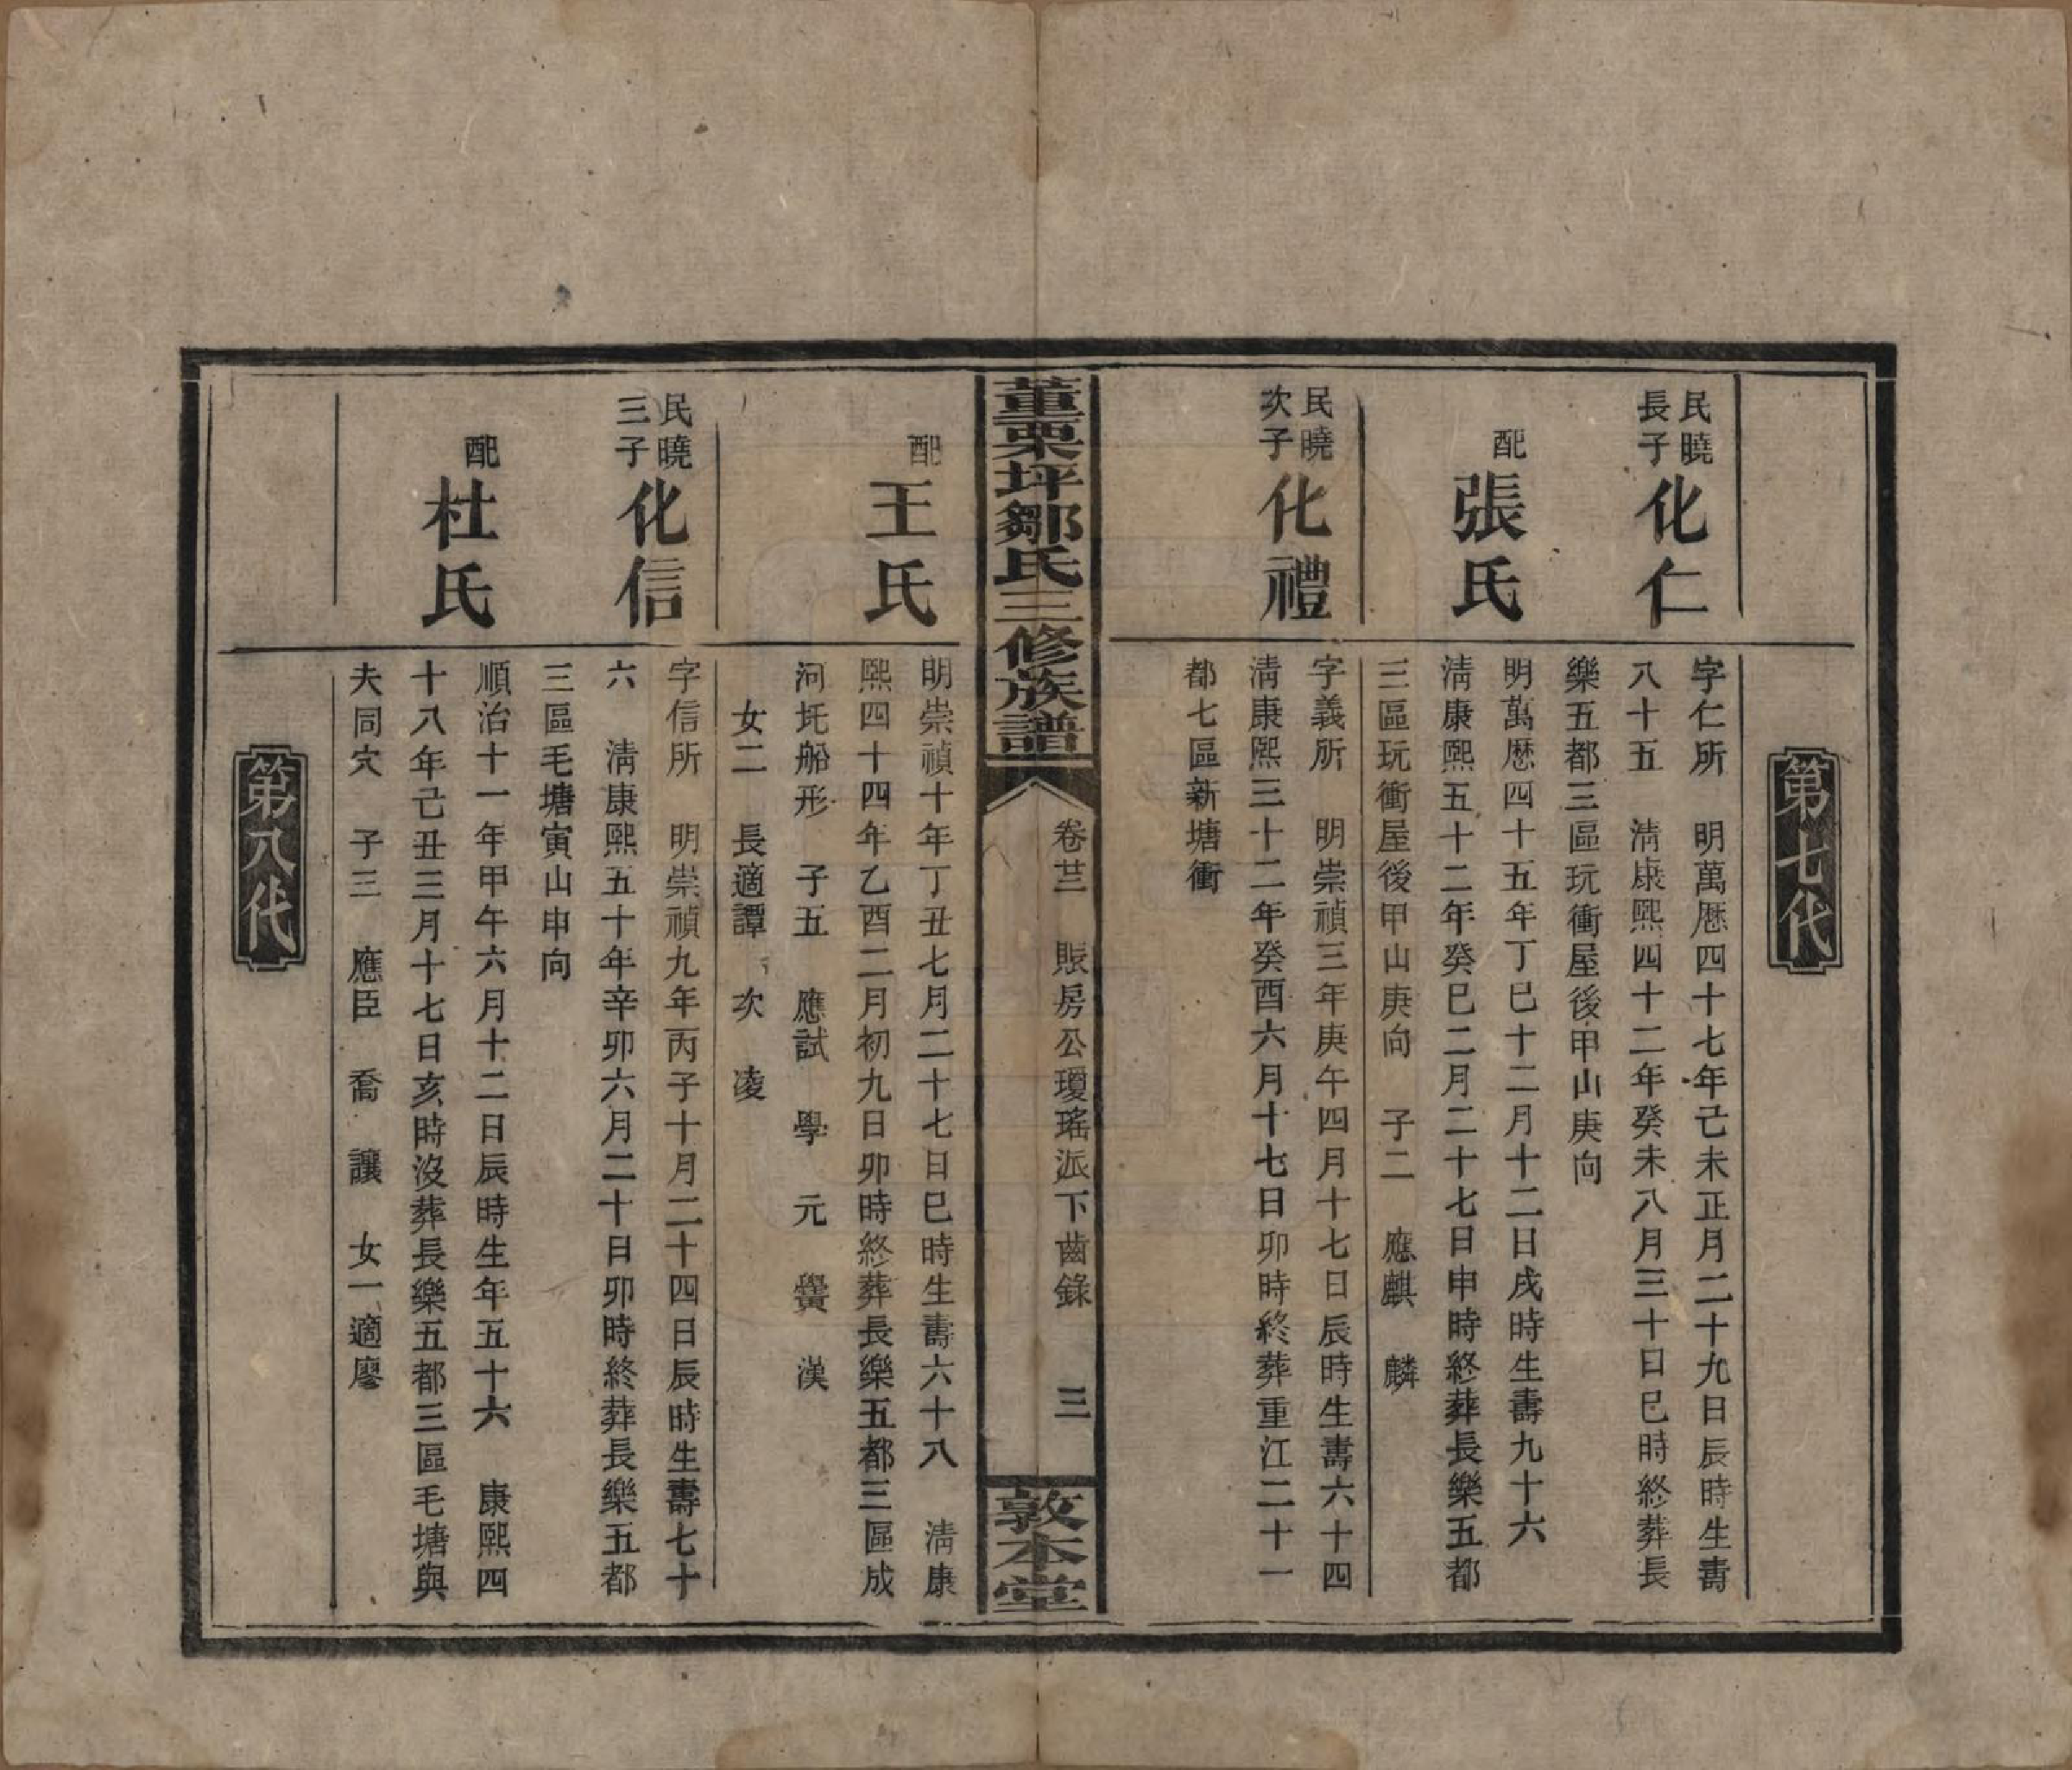 第七代
民曉長子
化仁
字仁所　明萬歷四十七年己未正月二十九日辰時生壽
八十五　淸康熙四十二年癸未八月三十日巳時終葬長
樂五都三區玩衝屋後甲山庚向
配
張氏
明萬歷四十五年丁巳十二月十二日戌時生壽九十六
淸康熙五十二年癸巳二月二十七日申時終葬長樂五都
三區玩衝屋後甲山庚向　子二　應麒　麟
民曉次子
化禮
字義所　明崇禎三年庚午四月十七日辰時生壽六十四
淸康熙三十二年癸酉六月十七日卯時終葬重江二十一
都七區新塘衝
董栗坪鄒氏三修族譜
卷廿二　賬房公瓊瑤派下齒錄　三
敦本堂
配
王氏
明崇禎十年丁丑七月二十七日巳時生壽六十八　淸康
熙四十四年乙酉二月初九日卯時終葬長樂五都三區成
河圫船形　子五　應試　學　元　黌　漢
女二　長適譚　次　凌
民曉三子
化信
字信所　明崇禎九年丙子十月二十四日辰時生壽七十
六　淸康熙五十年辛卯六月二十日卯時終葬長樂五都
三區毛塘寅山申向
配
杜氏
順治十一年甲午六月十二日辰時生年五十六　康熙四
十八年己丑三月十七日亥時沒葬長樂五都三區毛塘與
夫同穴　子三　應臣　喬　讓　女一適廖
第八代